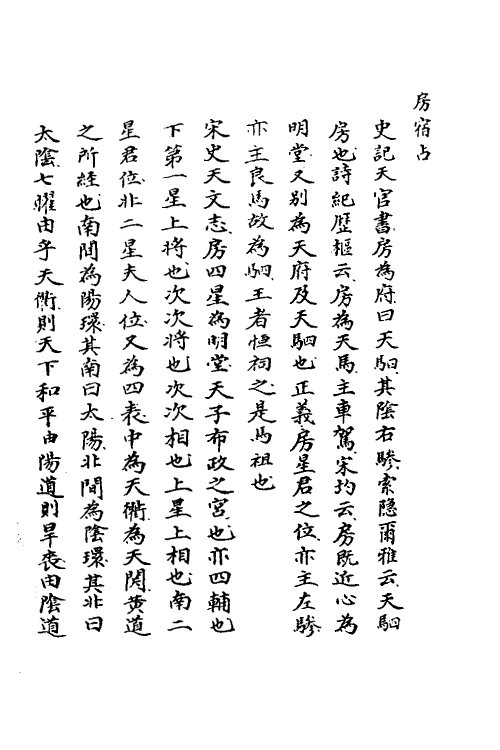 房宿占
史記天官書房為府曰天駟其陰右驂索隐爾雅云天駟
房也詩紀歷樞云房為天馬主車駕宋均云房既近心為
明堂又别為天府及天駟也正義房星君之位亦主左驂
亦主良馬故為駟王者恒祠之是馬祖也
宋史天文志房四星為明堂天子布政之宮也亦四輔也
下第一星上將也次次將也次次相也上星上相也南二
星君位北二星夫人位又為四表中為天衢為天関黄道
之所経也南間為陽環其南曰太陽北間為陰環其北曰
太陰七曜由乎天衢則天下和平由陽道則旱喪由陰道